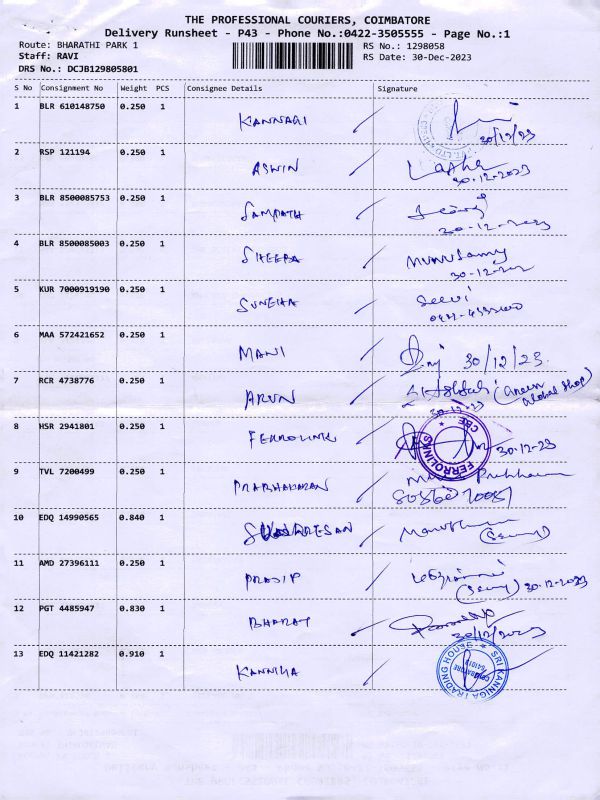 THE PROFESSIONAL COURIERS, COIMBATORE
Delivery Runsheet - P43 - Phone No.:0422-3505555 - Page No.:1
Route: BHARATHI PARK 1 RS No.: 1298058
Staff: RAVI RS Date: 30-Dec-2023
DRS No.: DCJB129805801
S No Consignment No Weight PCS Consignee Details Signature
1 BLR 610148750 0.250 1 KANNAGI 30/12/23
2 RSP 121194 0.250 1 ASWIN 30-12-2023
3 BLR 8500085753 0.250 1 SAMPATH 30-12-2023
4 BLR 8500085003 0.250 1 SHEEBA Munusamy
30-12-202
5 KUR 7000919190 0.250 1 SUNEHA Selvi
6 MAA 572421652 0.250 1 MANI 30/12/23.
7 RCR 4738776 0.250 1 ARUN Global Shop)
30-12-23
8 HSR 2941801 0.250 1 FERROLINK 30-12-23
FERROLINKS CBE
9 TVL 7200499 0.250 1 PRABHAKARAN
10 EDQ 14990565 0.840 1
11 AMD 27396111 0.250 1 PRADIP 30-12-2023
12 PGT 4485947 0.830 1 BHARAT
30/12/2023
13 EDQ 11421282 0.910 1 KANNIKA
SRI KANNIGA TRADING HOUSE
COIMBATORE